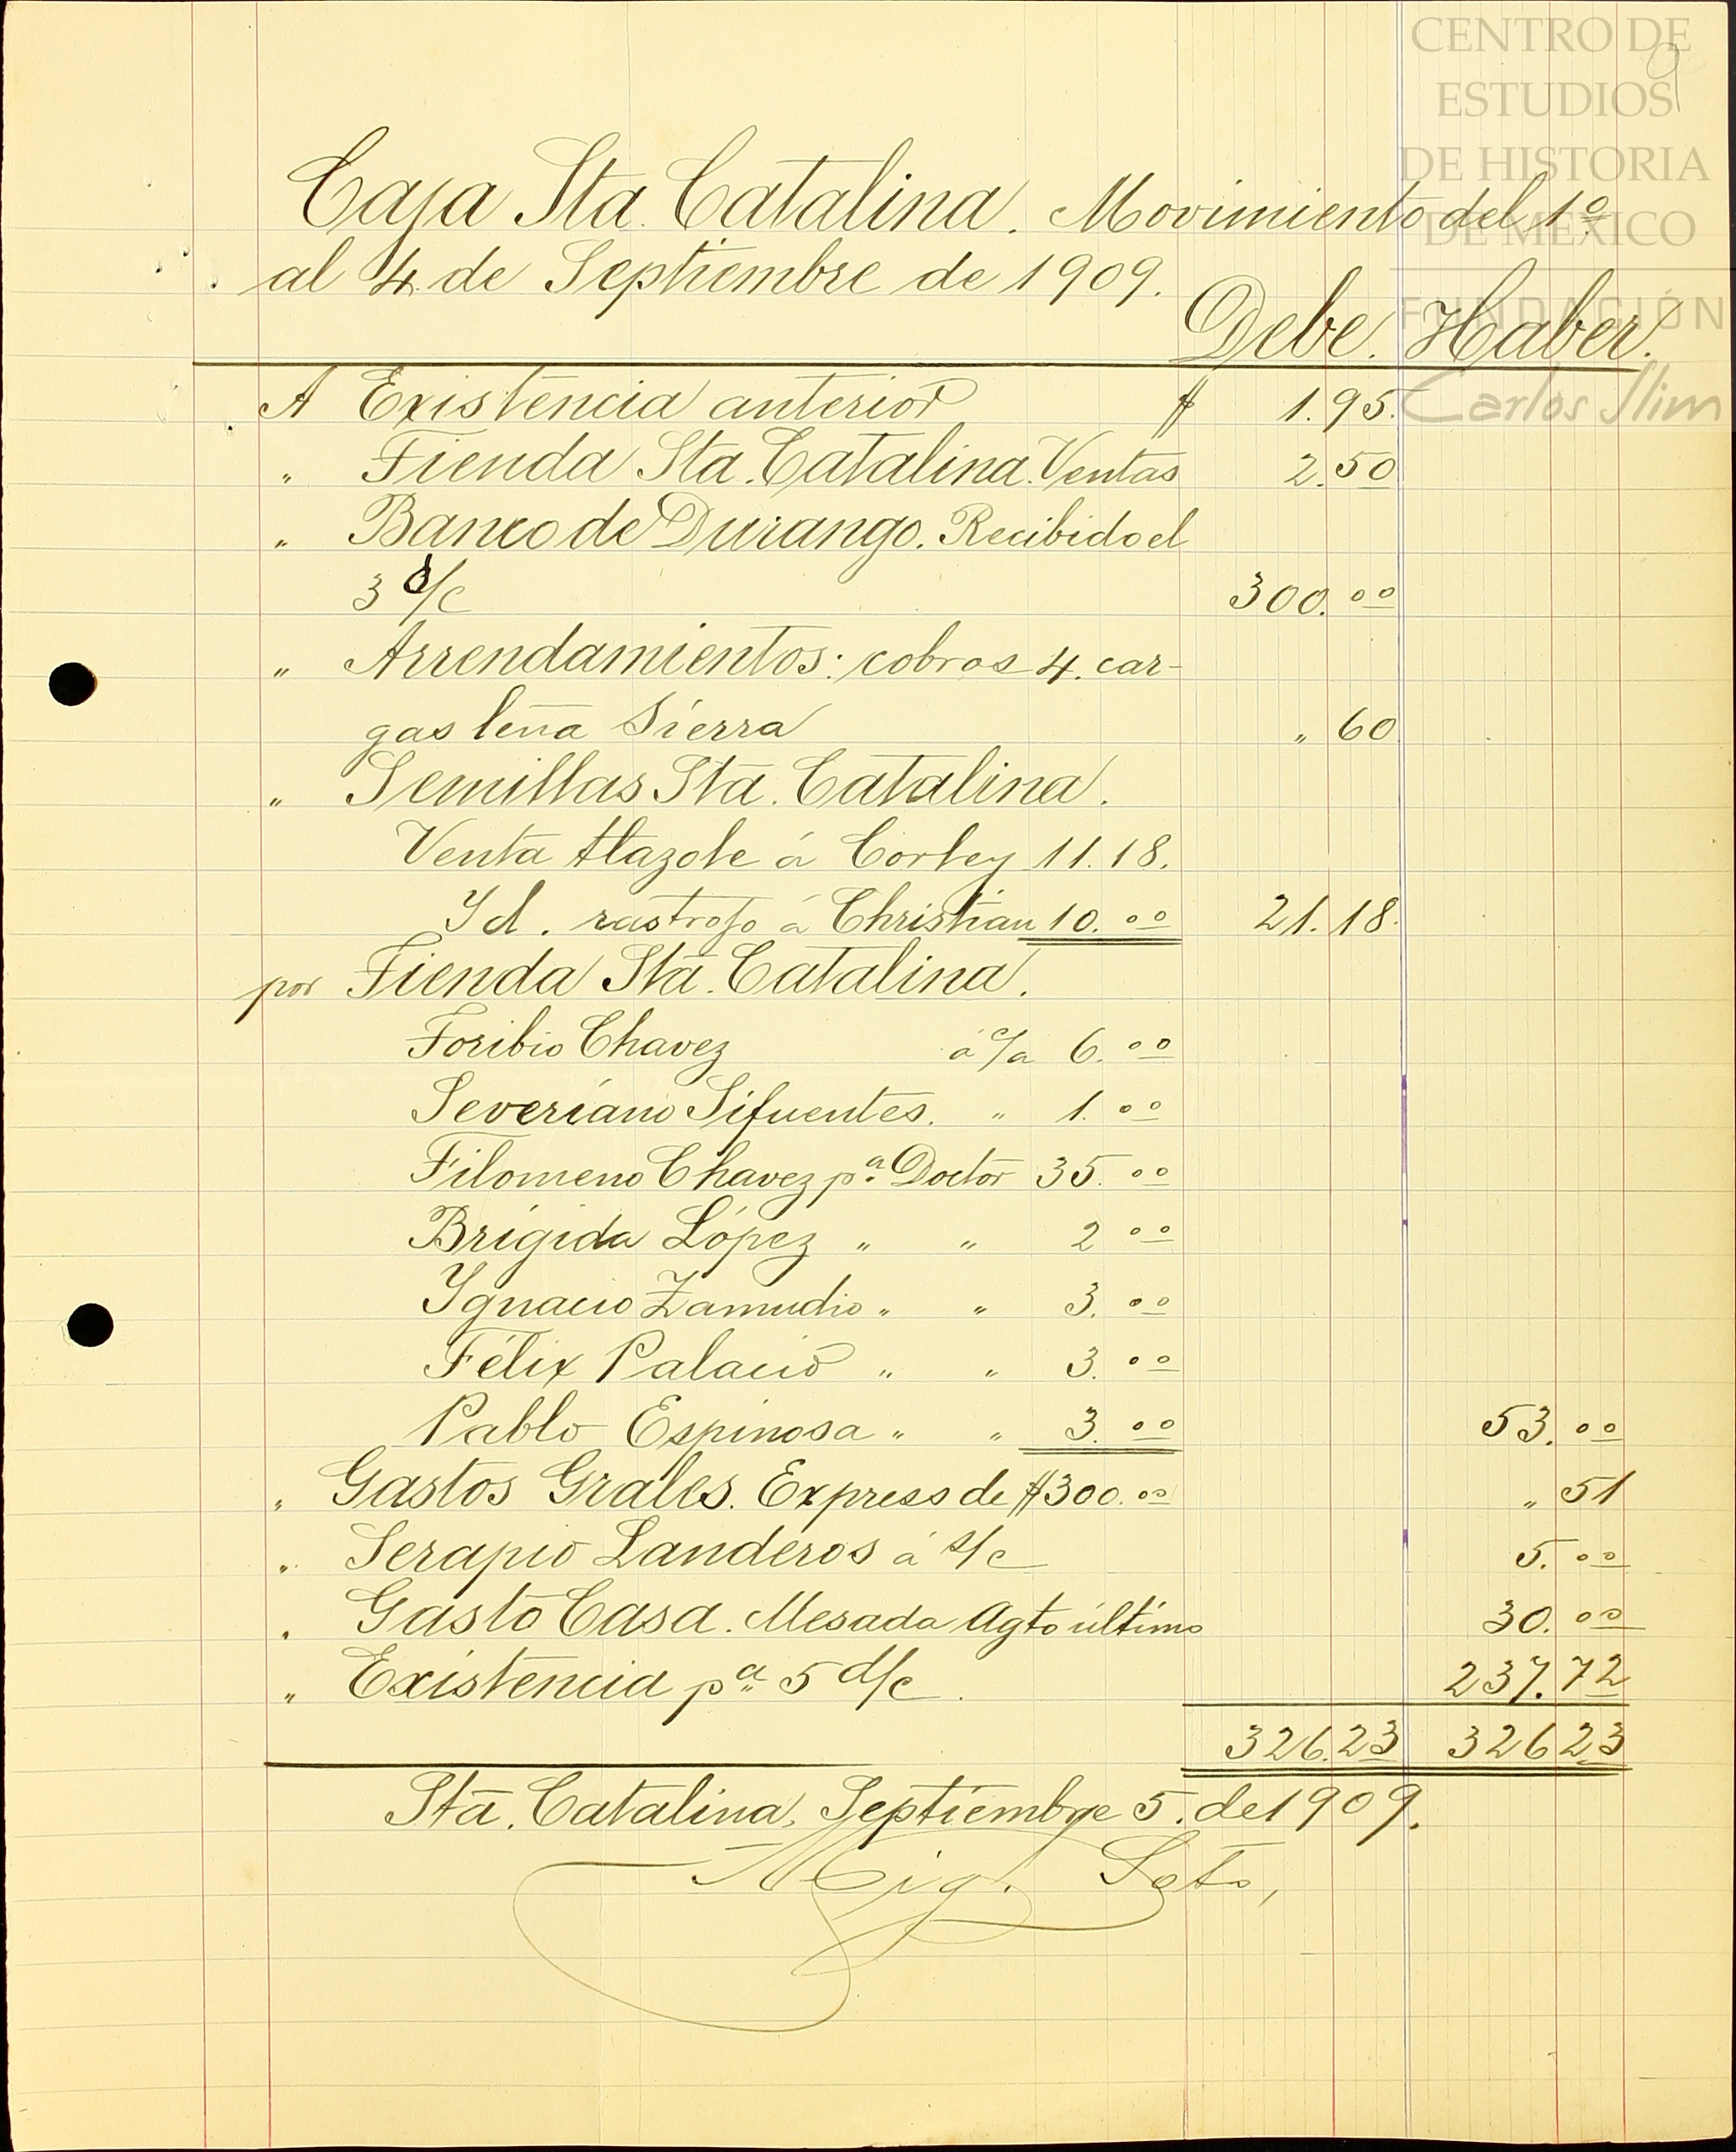 CENTRO DE
ESTUDIOS
DE HISTORIA
DE MÉXICO
FUNDACIÓN
Carlos Slim
9
Caja Sta. Catalina. Movimiento del 1º
al 4 de Septiembre de 1909.
Debe. Haber.
A Existencia anterior $ 1.95.
" Tienda Sta. Catalina. Ventas 2.50
" Banco de Durango. Recibido el
3 d/c 300.00
" Arrendamientos: cobros 4. car-
gas leña Sierra " 60
" Semillas Sta. Catalina.
Venta tlazole á Corley 11.18.
Yd. rastrojo á Christian 10.00 21.18.
por Tienda Sta. Catalina.
Toribio Chavez á c/a 6.00
Severiano Sifuentes. " 1.00
Filomeno Chavez pª Doctor 35.00
Brigida López " " 2 00
Ygnacio Zamudio " " 3.00
Félix Palacio " " 3.00
Pablo Espinosa " " 3.00 53.00
" Gastos Grales. Express de $300.00 " 51
" Serapio Landeros á s/c 5.00
" Gasto Casa. Mesada Agto último 30.00
" Existencia pª 5 d/c. 237.72
326.23 326 23
Sta. Catalina, Septiembre 5. de 1909.
Mig. Soto,